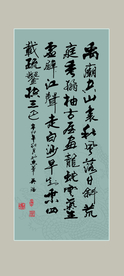 禹廟空山裏秋風落日斜荒
庭垂橘柚古屋畫龍蛇雲氣生
虛壁江聲走白沙早知乘四
載疏鑿控三巴